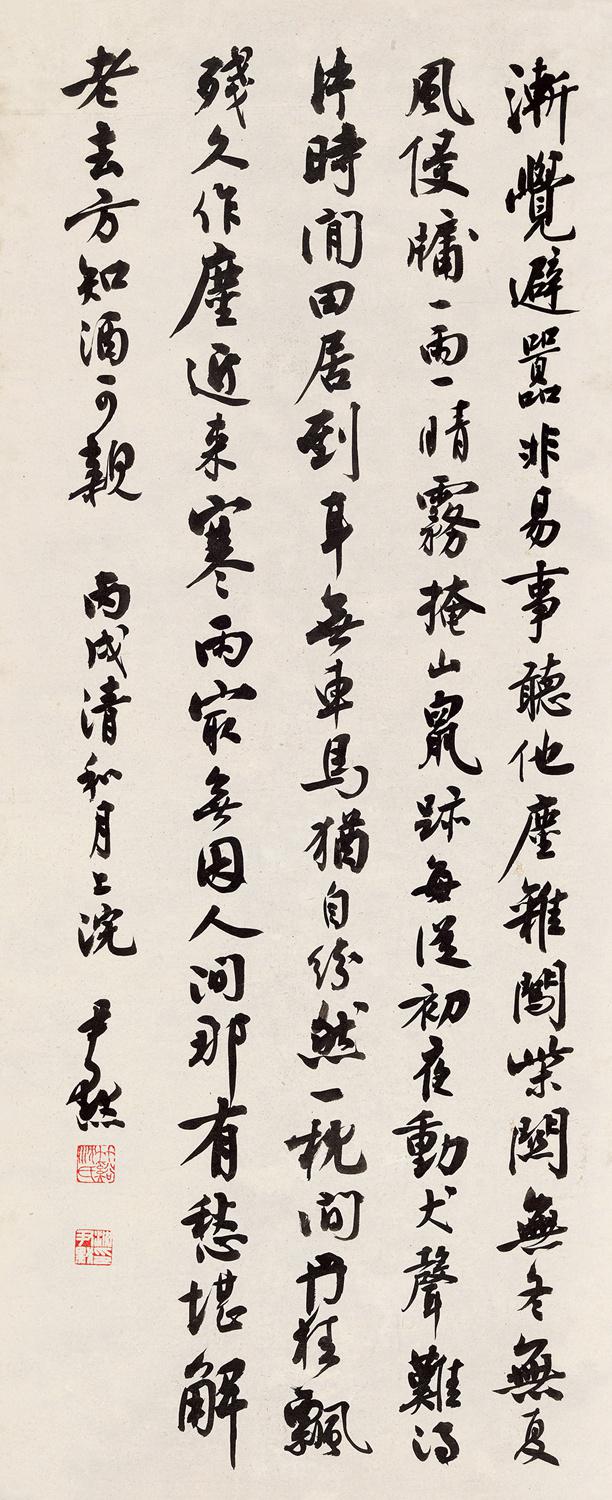 漸覺避囂非易事聽他塵雜闖柴關無冬無夏
風侵牖一雨一晴霧掩山鼠跡每從初夜動犬聲難得
片時閒田居到耳無車馬猶自紛然一枕間丹桂飄
殘久作塵近來寒雨寂無因人間那有愁堪解
老去方知酒可親 丙戌清和月上浣 尹默
竹谿沈氏